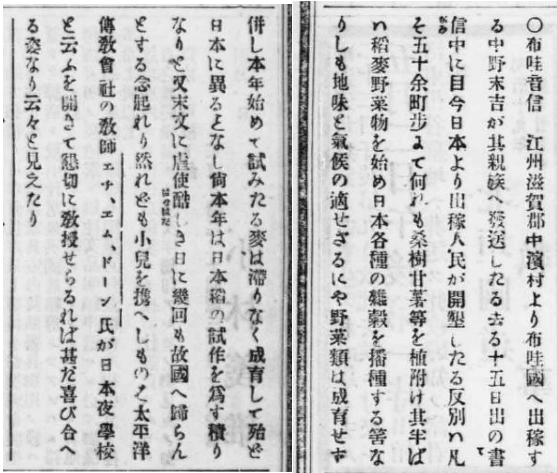 〇布哇音信　江州滋賀郡中濱村より布哇國へ出稼す
る中野末吉が其親族へ發送したる去る十五日出の書
信中に目今日本より出稼人民が開墾したる反別ハ凡
そ五十余町歩まて何れも桑樹甘蔗等を植附け其半ば
ハ稻麥野菜物を始め日本各種の雜穀を播種する筈な
りしも地味と氣候の適せざるにや野菜類は成育せず
併し本年始めて試みたる麥は滯りなく成育して殆ど
日本に異るとなし尚本年は日本稻の試作を為す積り
なりと又末文に虐使酷しき日に幾回も故國へ歸らん
とする念起れり然れども小兒を携へしものと太平洋
傳敎會社の敎師エサ、エム、ドーン氏が日本夜學校
と云ふを開きて懇切に敎授せらるれば甚だ喜び合へ
る姿なり云々と見えたり